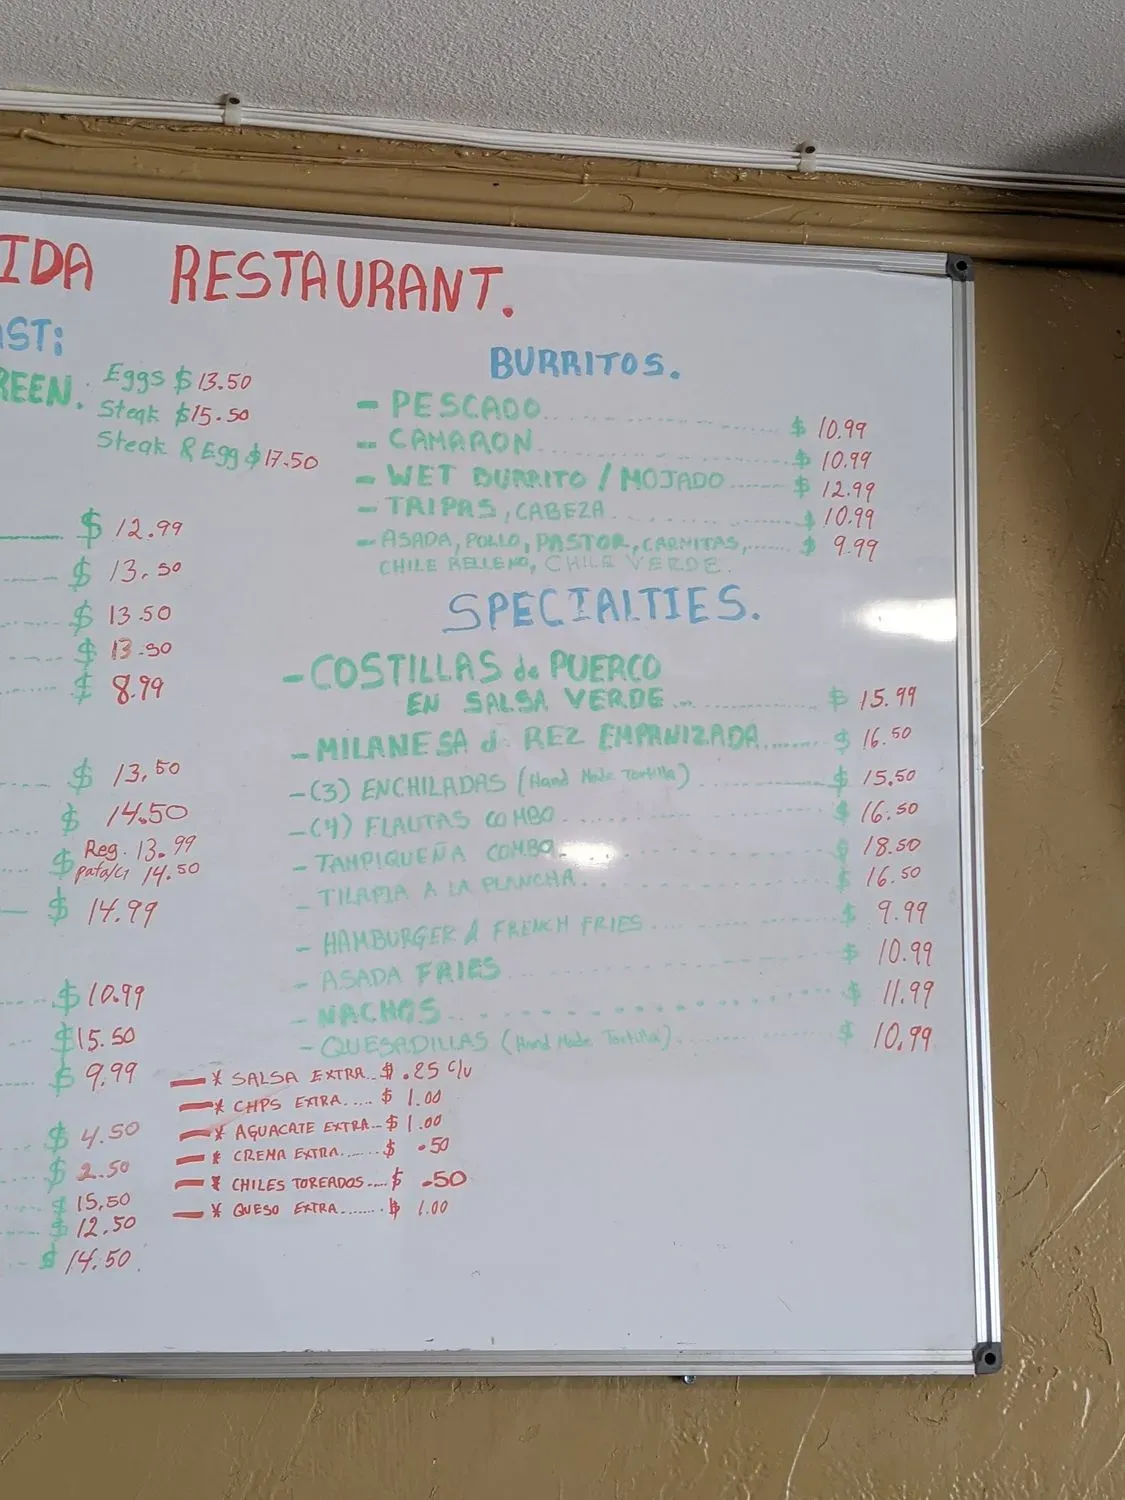 IDA RESTAURANT.
AST:
REEN. Eggs $13.50
Steak $15.50
Steak & Egg $17.50
$ 12.99
$ 13.50
$ 13.50
$ 13.50
$ 8.99
$ 13.50
$ 14.50
$ Reg. 13.99
14.50
$ 14.99
$10.99
$15.50
$ 9.99
$ 4.50
$ 2.50
$ 15.50
$ 12.50
$ 14.50.
BURRITOS.
- PESCADO $ 10.99
- CAMARON $ 10.99
- WET BURRITO / MOJADO $ 12.99
- TRIPAS, CABEZA $ 10.99
- ASADA, POLLO, PASTOR, CARNITAS, $ 9.99
CHILE RELLENO, CHILE VERDE.
SPECIALTIES.
- COSTILLAS de PUERCO
EN SALSA VERDE $ 15.99
- MILANESA d REZ EMPANIZADA $ 16.50
- (3) ENCHILADAS (Hand Made Tortilla) $ 15.50
- (4) FLAUTAS COMBO $ 16.50
- TAMPIQUEÑA COMBO $ 18.50
- TILAPIA A LA PLANCHA $ 16.50
- HAMBURGER & FRENCH FRIES $ 9.99
- ASADA FRIES $ 10.99
- NACHOS $ 11.99
- QUESADILLAS (Hand Made Tortilla) $ 10.99
* SALSA EXTRA.. $ .25 c/u
* CHPS EXTRA.... $ 1.00
* AGUACATE EXTRA.. $ 1.00
* CREMA EXTRA...... $ .50
* CHILES TOREADOS.... $ .50
* QUESO EXTRA....... $ 1.00